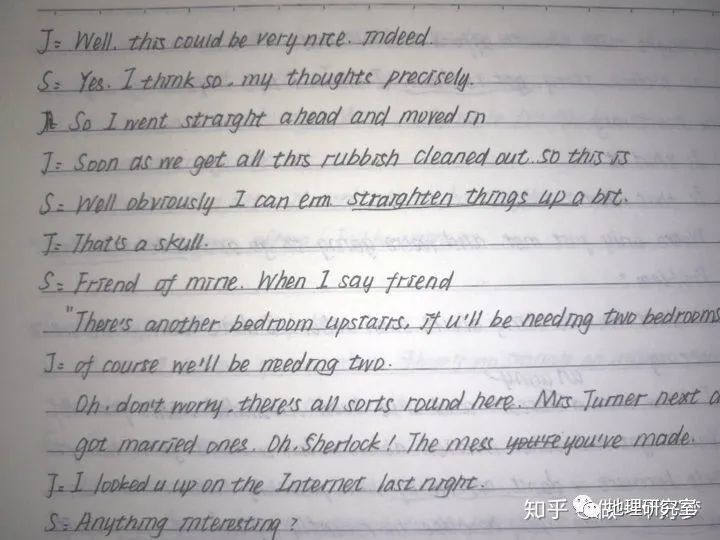 J: Well, this could be very nice. indeed.
S: Yes. I think so. my thoughts precisely.
So I went straight ahead and moved in
J: Soon as we get all this rubbish cleaned out. so this is
S: Well obviously I can erm straighten things up a bit.
J: That's a skull.
S: Friend of mine. When I say friend
"There's another bedroom upstairs, if u'll be needing two bedrooms
J: of course we'll be needing two.
Oh, don't worry, there's all sorts round here. Mrs Turner next
got married ones. Oh, Sherlock! The mess you're you've made.
J: I looked u up on the Internet last night.
S: Anything interesting?
知乎 地理研究室